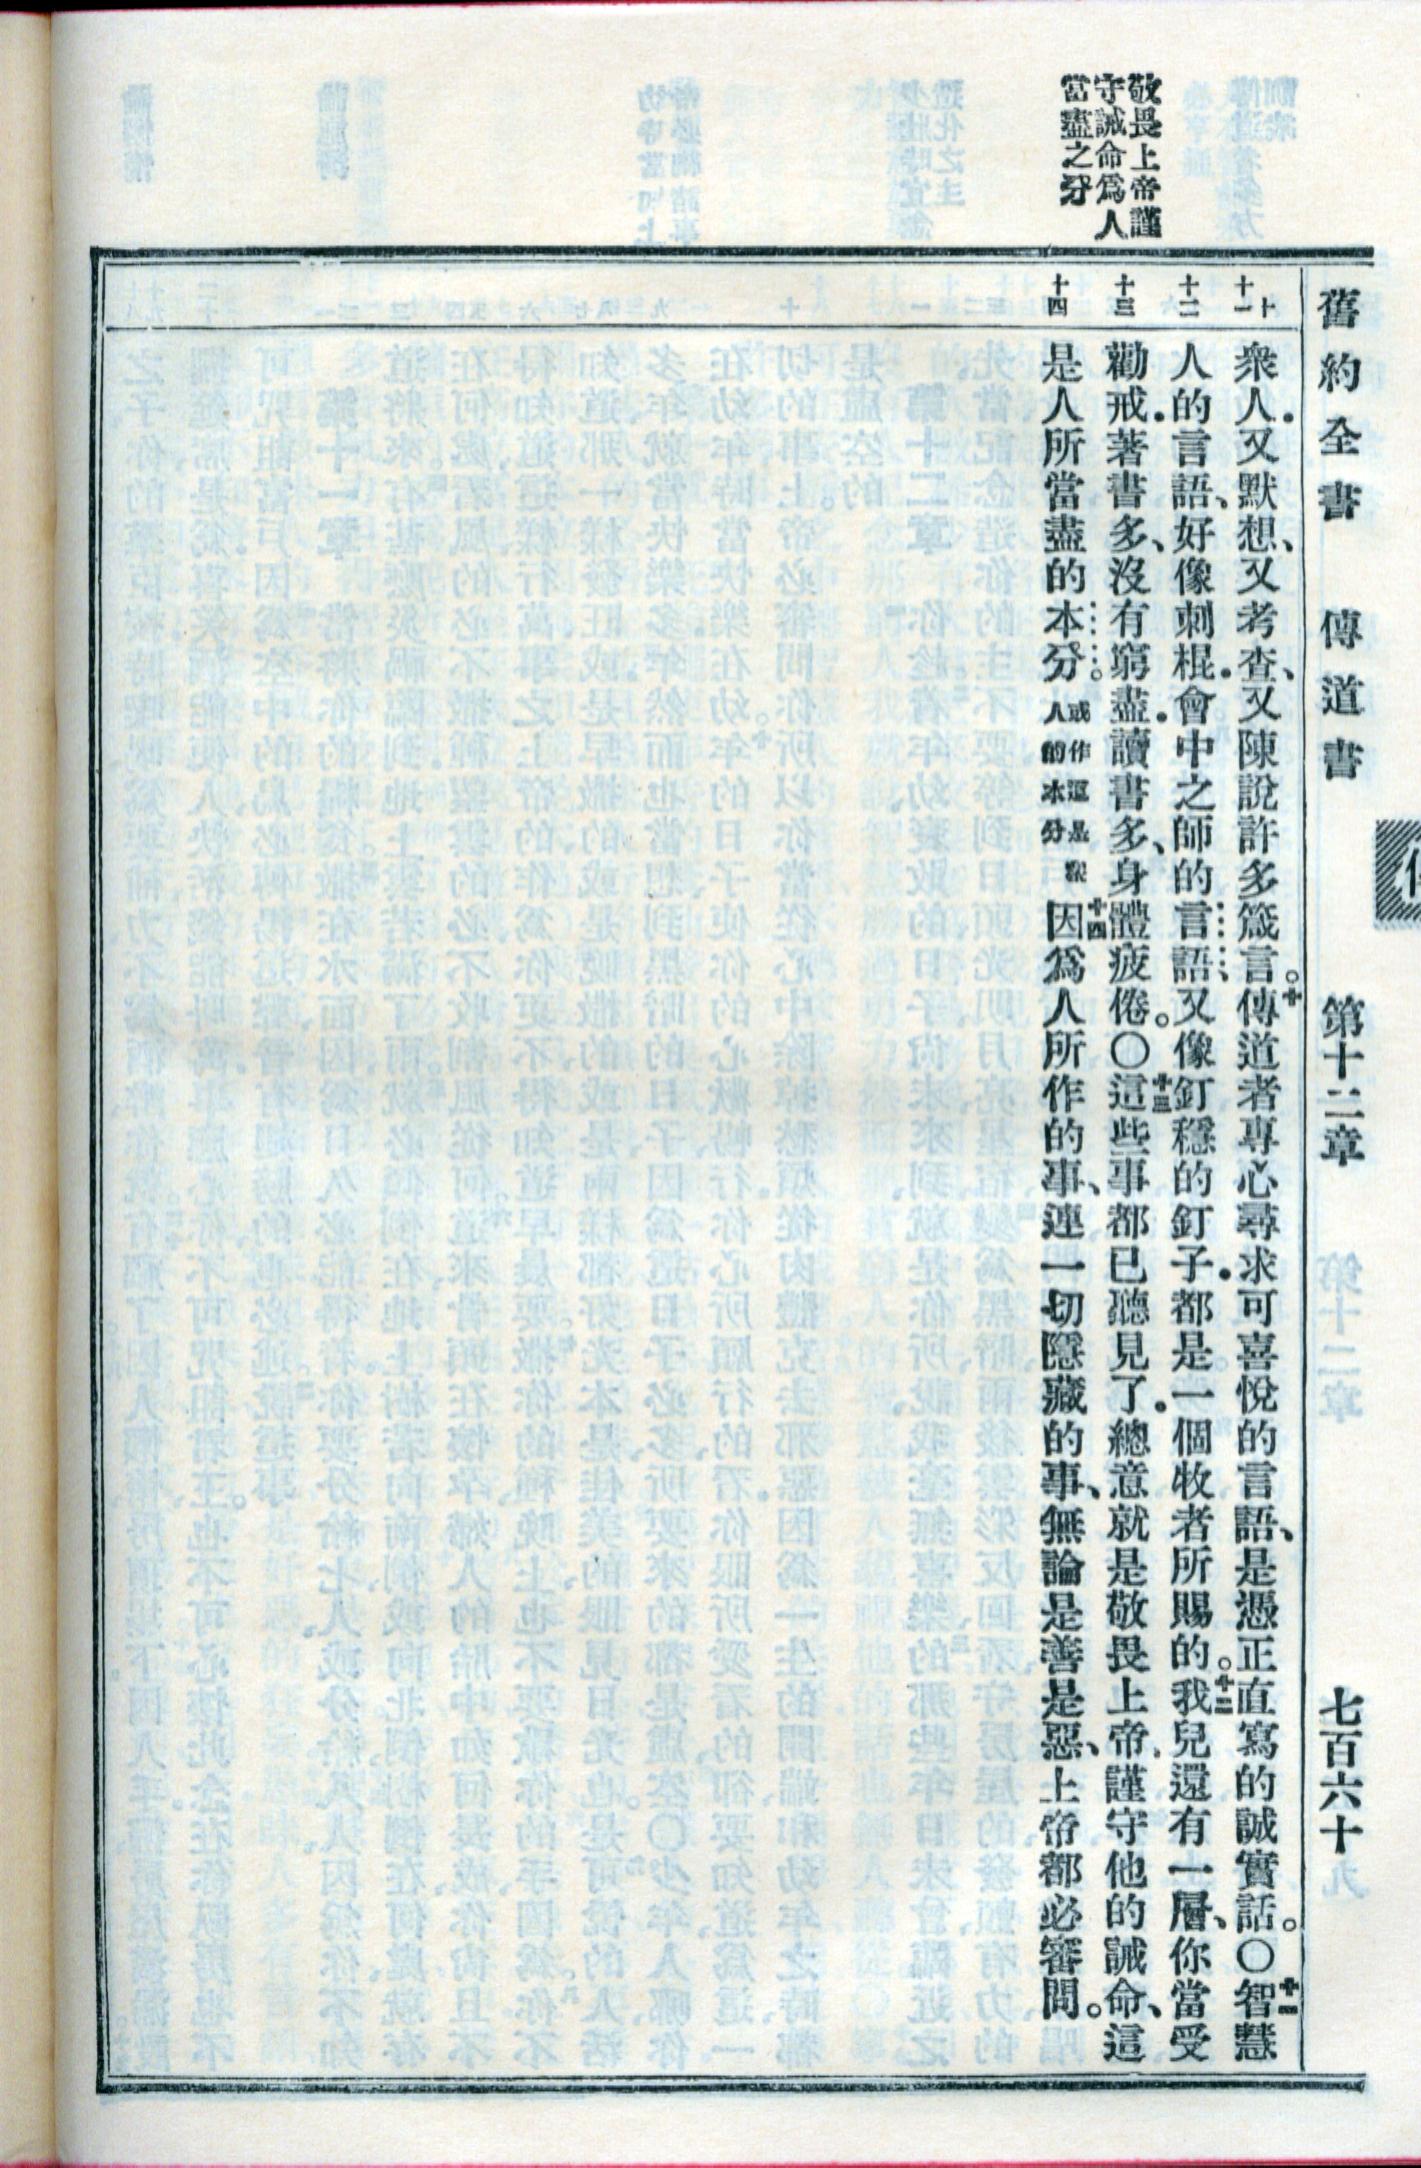 舊約全書 傳道書 第十二章 七百六十
敬畏上帝謹
守誡命爲人
當盡之分
十
十一
十二
十三
十四
衆人.又默想、又考查、又陳說許多箴言。十傳道者專心尋求可喜悅的言語、是憑正直寫的誠實話。〇十一智慧
人的言語、好像刺棍.會中之師的言語又像釘穩的釘子.都是一個牧者所賜的。十二我兒還有一層、你當受
勸戒.著書多、沒有窮盡.讀書多、身體疲倦。〇十三這些事都已聽見了.總意就是敬畏上帝、謹守他的誡命、這
是人所當盡的本分。或作這是衆人的本分十四因爲人所作的事、連一切隱藏的事、無論是善是惡、上帝都必審問。